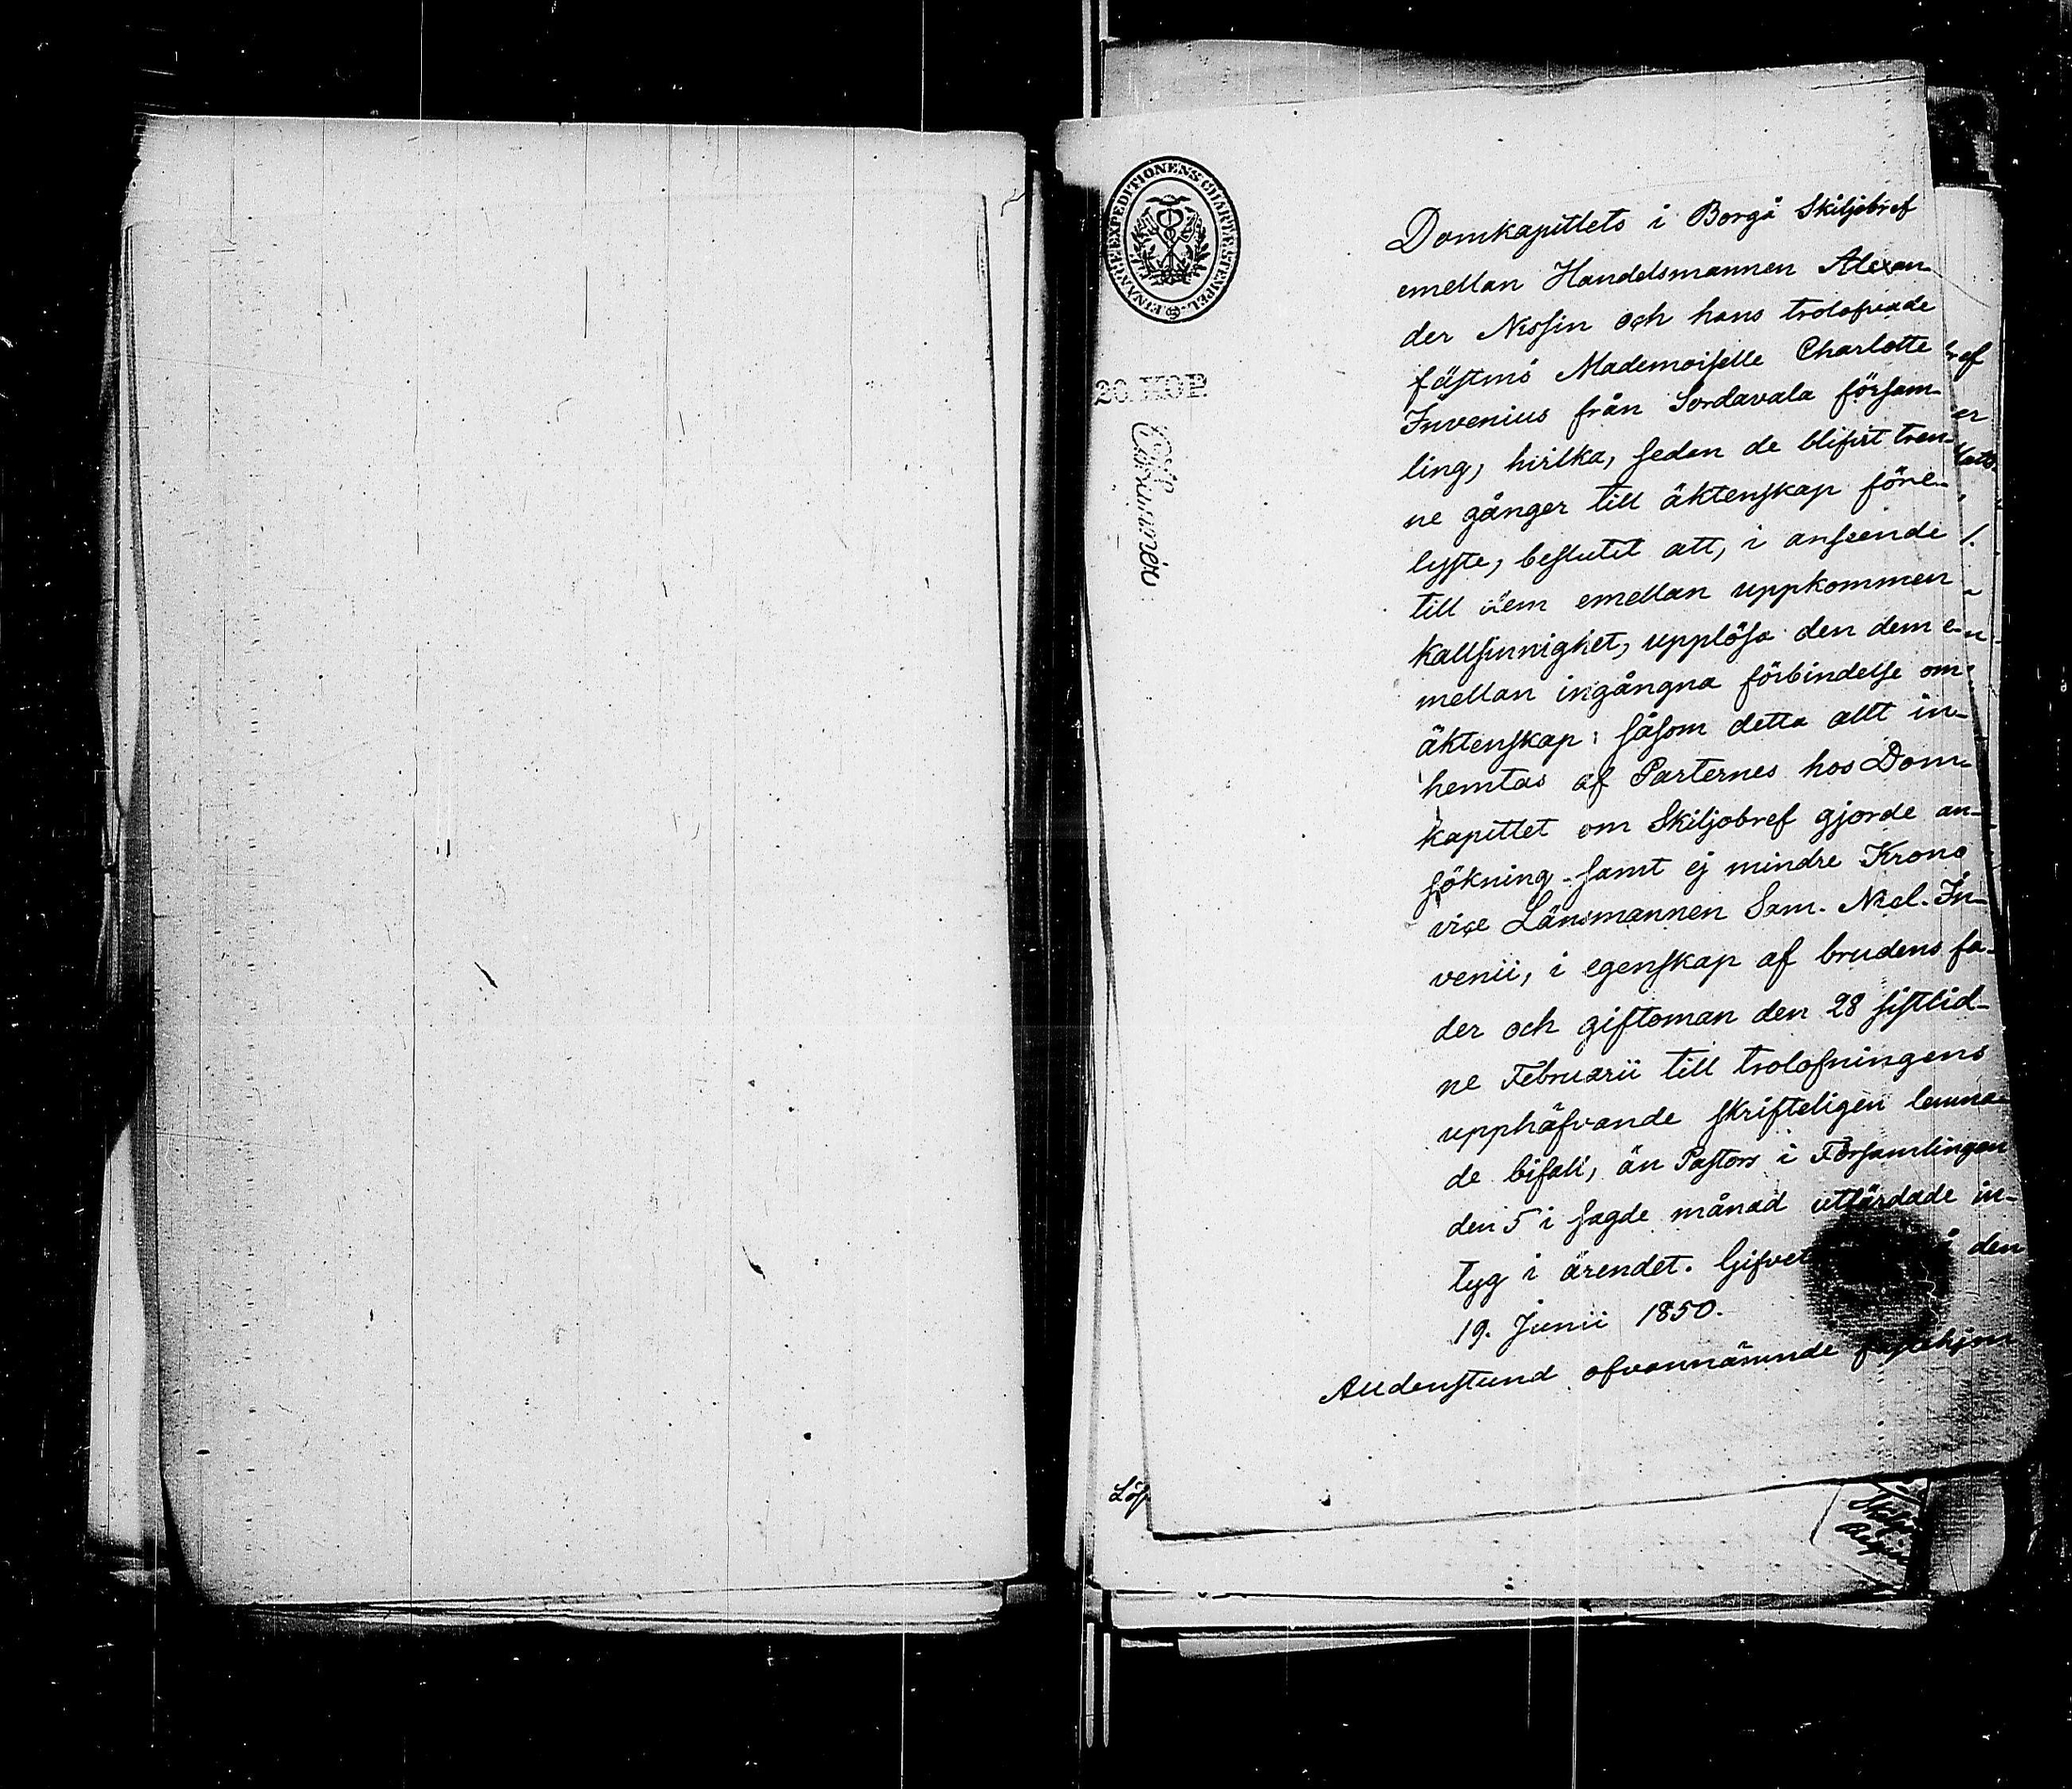 FINANCE EXPEDITIONENS CHARTÆ STEMPEL
20. KOP.
Domkapitlets i Borgå Skiljobref
emellan Handelsmannen Alexan-
der Nissin och hans trolofvade
fästmö Mademoiselle Charlotte
Invenius från Sordavala försam-
ling, hvilka, sedan de blifvit tren-
ne gånger till äktenskap före-
lyste, beslutit att, i anseende
till dem emellan uppkommen
kallsinnighet, upplösa den dem e-
mellan ingångna förbindelse om
äktenskap; såsom detta allt in-
hemtas af Parternes hos Dom-
kapitlet om Skiljobref gjorde an-
sökning samt ej mindre Krono
vice Länsmannen Sam. Nicl. In-
venii, i egenskap af brudens fa-
der och giftoman den 28 sistlid-
ne Februarii till trolofningens
upphäfvande skrifteligen lemna-
de bifall, än Pastors i Församlingen
den 5 i sagde månad utfärdade in-
tyg i ärendet. Gifvet å den
19. Junii 1850.
Alldenstund ofvannämnde